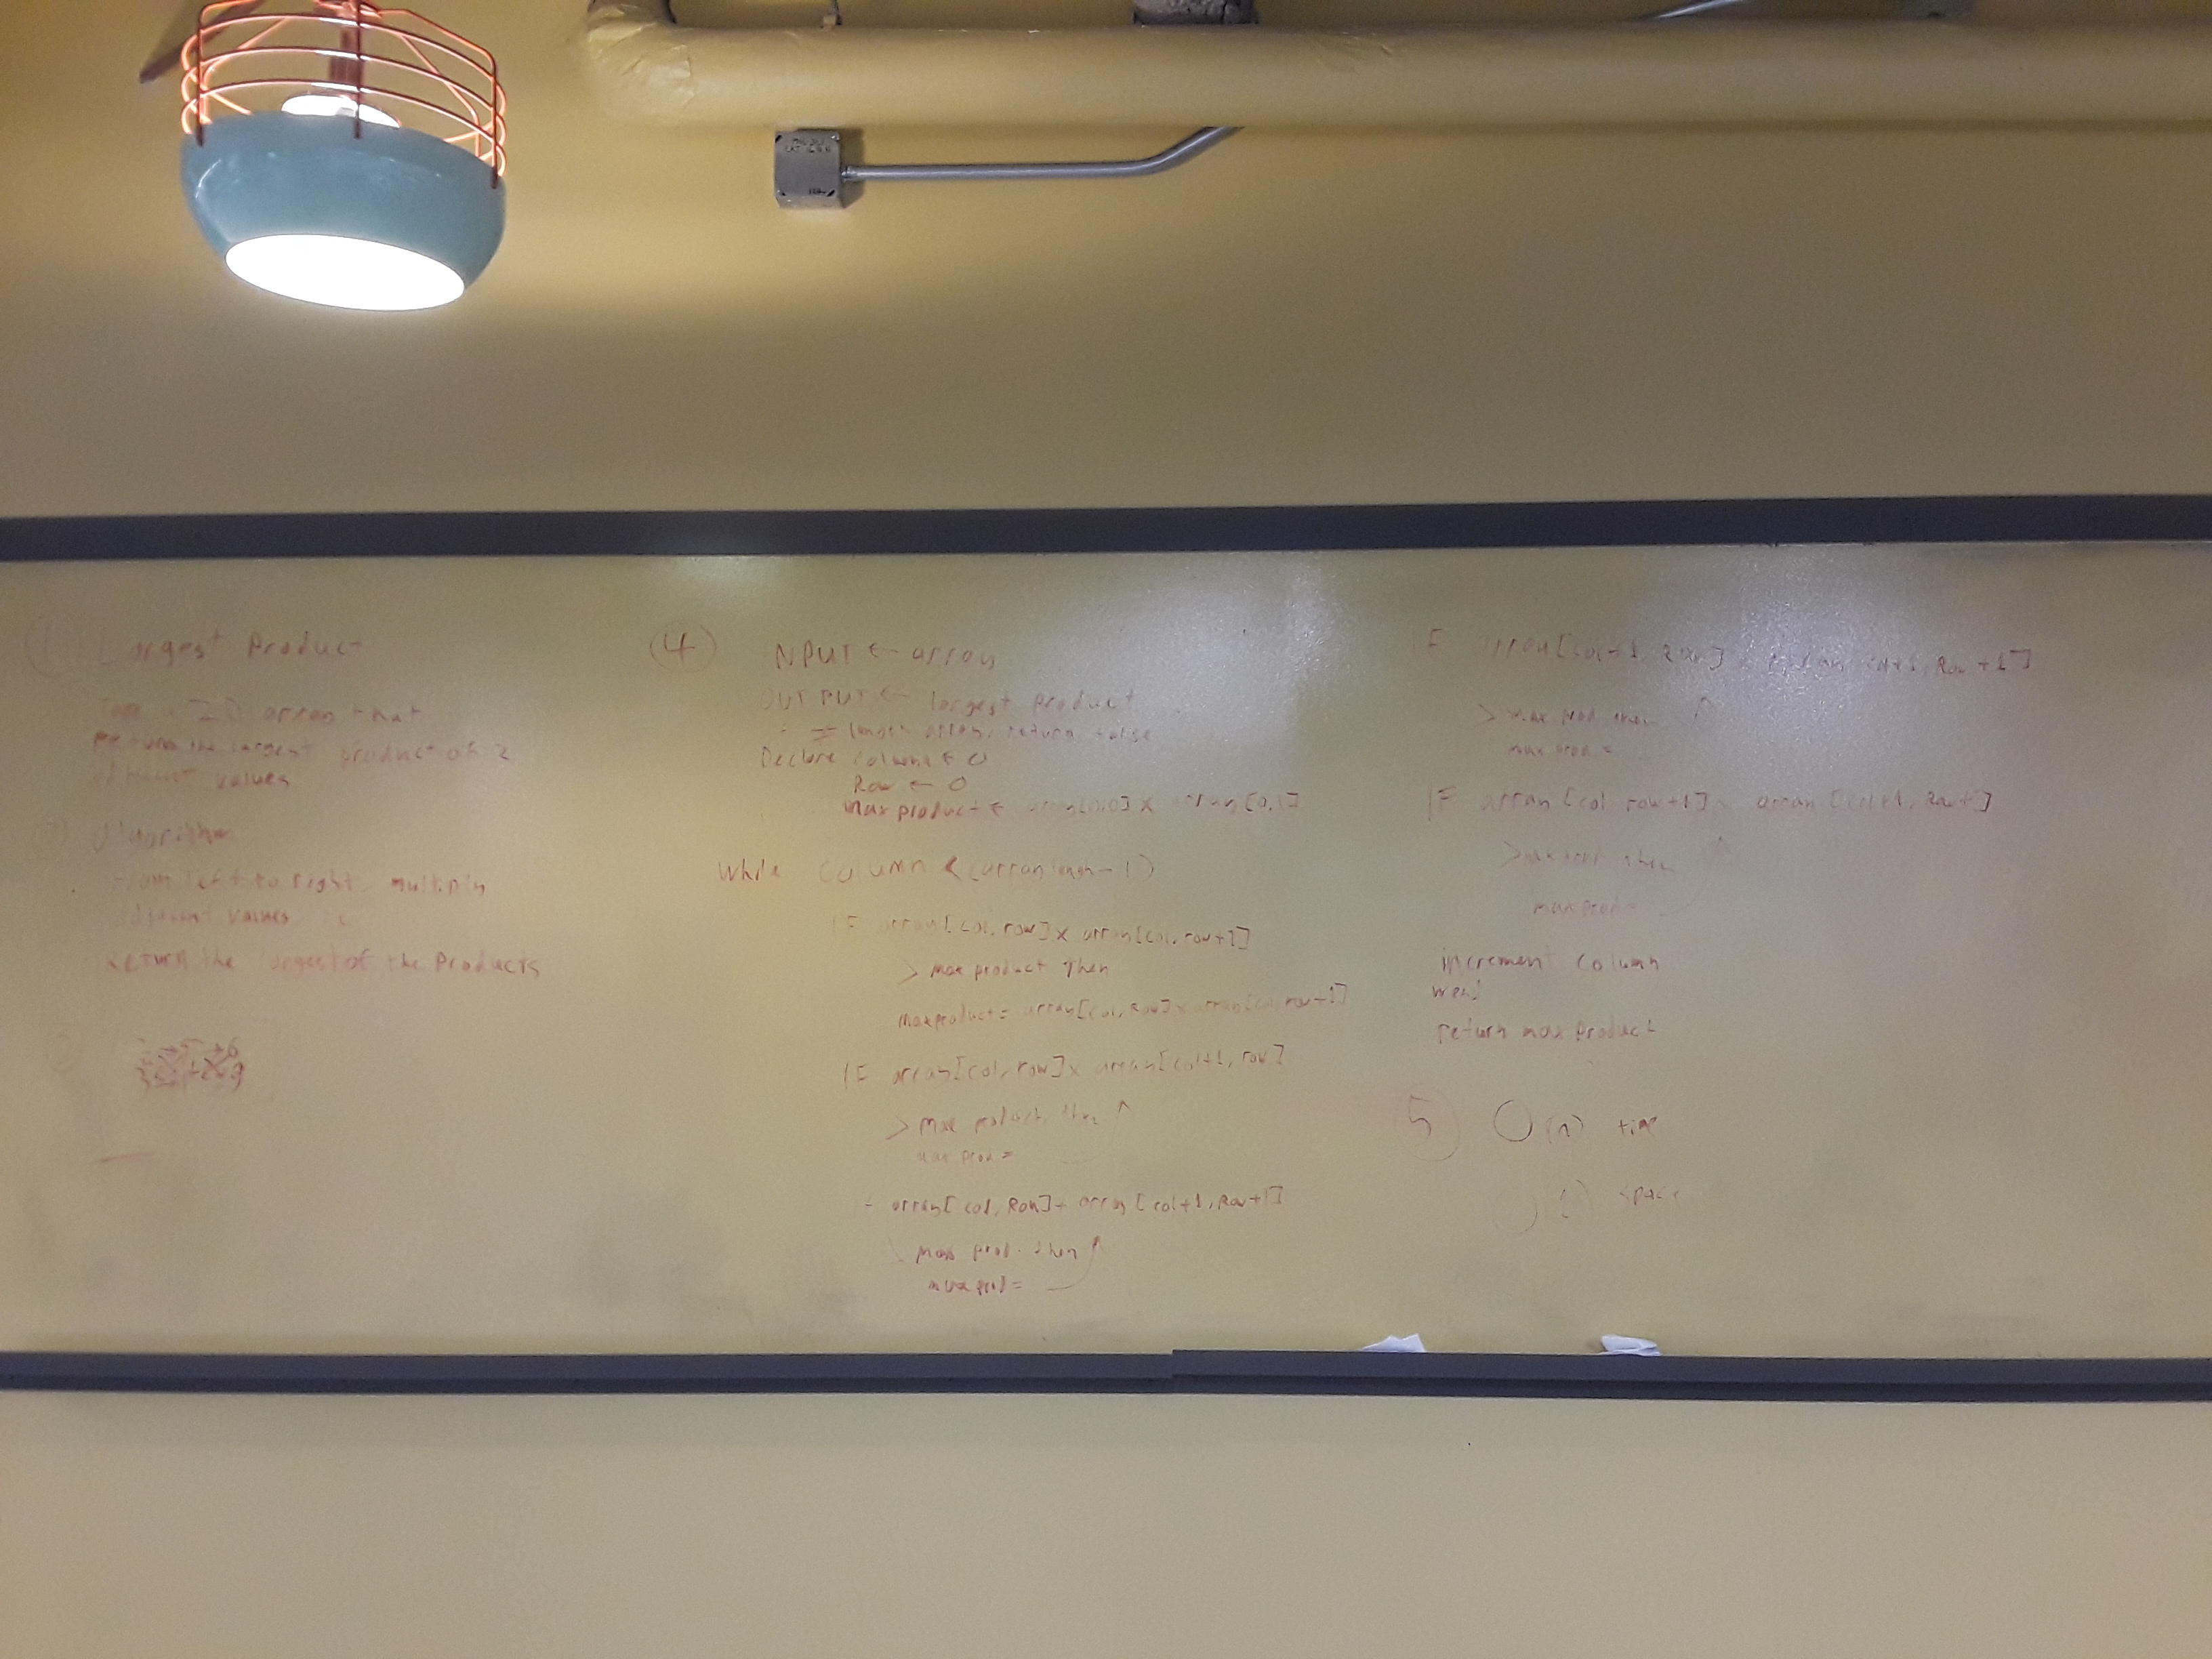 1 Largest Product
2D array that
Return the largest product of 2
adjacent values
2 Algorithm
From left to right, multiply
adjacent values
Return the largest of the Products
3
4 INPUT ← array
OUTPUT ← largest product
≠ length array, return false
Declare column ← 0
Row ← 0
Max product ← array[0,0] x array[0,1]
While column < (array length - 1)
IF array[col, row] x array[col, row+1]
> max product Then
Max product = array[col, Row] x array[col, row+1]
IF array[col, row] x array[col+1, row]
> max product, then
max prod =
array[col, Row] + array[col+1, Row+1]
max prod. then
max prod =
IF array[col+1, Row] array[col+1, Row+1]
> max prod then
max prod =
IF array[col, row+1] array[col+1, Row]
> max prod then
max prod =
increment column
wend
return max product
5 O(n) time
space